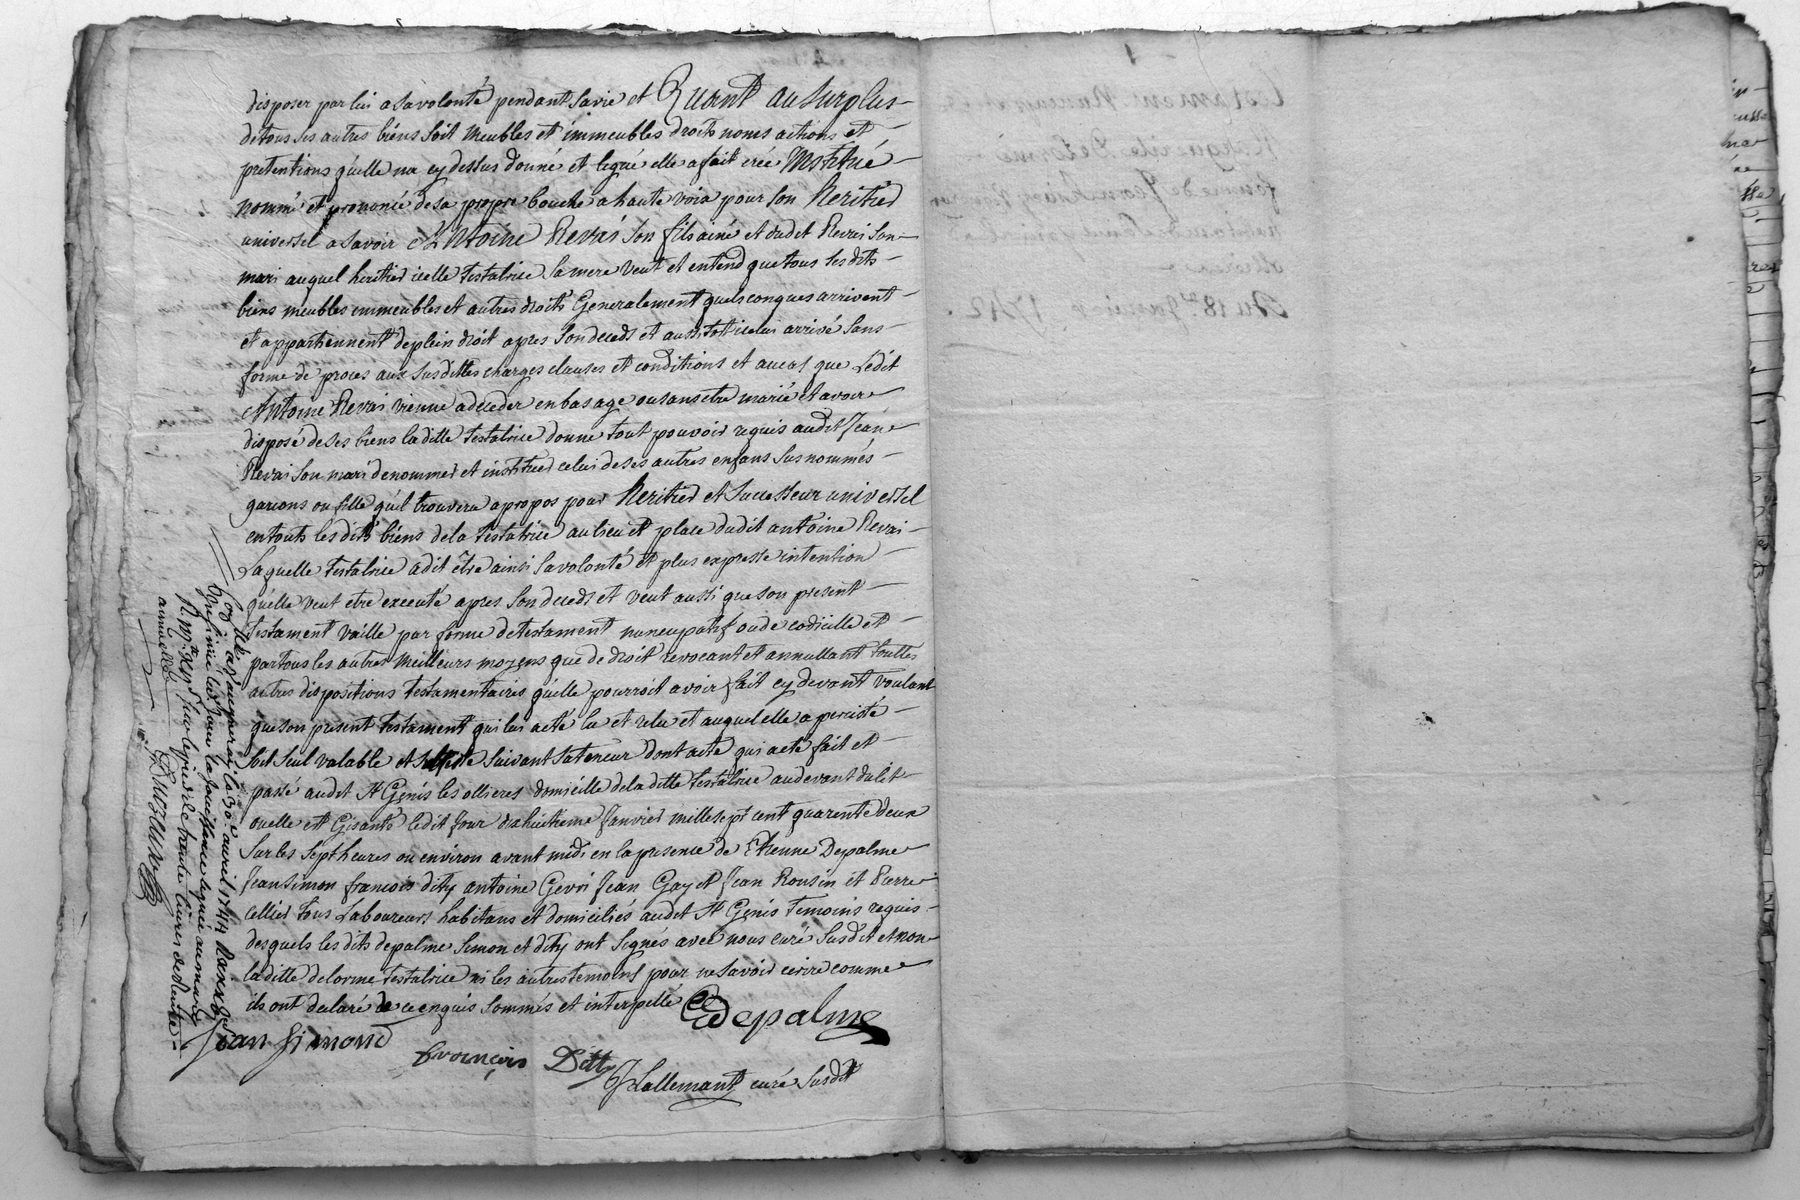 disposer par lui a sa volonté pendant sa vie et Quant au surplus
de tous ses autres biens soit meubles et immeubles droits noms actions et
pretentions qu'elle na cy dessus donné et legué elle a fait créé Institué
nommé et prononcé de sa propre bouche a haute voix pour son Heritier
universel a savoir Antoine Revai son fils ainé et dudit Revai son
mari auquel heritier icelle testatrice sa mere veut et entend que tous ses dits
biens meubles immeubles et autres droits Generalement quelsconques arrivent
et appartiennent de plein droit apres son deceds et aussitot icelui arrivé sans
forme de proces aux susdittes charges clauses et conditions et au cas que Ledit
Antoine Revai vienne a deceder en bas age ou sans etre marié et avoir
disposé de ses biens la ditte testatrice donne tout pouvoir requis audit Jean
Revai son mari de nommer et instituer celui de ses autres enfans sus nommés
garcons ou fille qu'il trouvera a propos pour Heritier et Successeur universel
en touts les dits biens de la testatrice au lieu et place dudit antoine Revai
Laquelle testatrice a dit être ainsi sa volonté et plus expresse intention
qu'elle veut etre executé apres son deceds et veut aussi que son present
testament vaille par forme de testament nuncupatif ou de codicille et
par tous les autres meilleurs moyens que de droit revocant et annullant touttes
autres dispositions testamentaires qu'elle pourroit avoir fait cy devant voulant
que son present testament qui lui a eté lu et relu et auquel elle a percisté
soit seul valable et suivant sa teneur dont acte qui a eté fait et
passé audit St Genis les ollieres domicille de la ditte testatrice au devant du lit
ou elle est Gisante ledit jour dixhuitieme Janvier mille sept cent quarente deux
sur les sept heures ou environ avant midi en la presence de Etienne Depalme
Jean Simon francois dity antoine Gevri Jean Gay et Jean Rousin et Pierre
cellier tous Laboureurs habitans et domiciliés audit St Genis temoins requis
desquels les dits depalme Simon et dity ont signés avec nous curé susdit et non
la ditte delorme testatrice ni les autres temoins pour ne savoir ecrire comme
ils ont declaré de ce enquis sommés et interpellé
E depalme
Jean Simond
francois Ditty
J Lallemant curé susdit
avril 1744
la jouissance leguée au mari
de trente livres de
annuelle
testament Nuncupatif
Marguerite Delorme
femme de Jean Revai
Du 18me Janvier 1742.